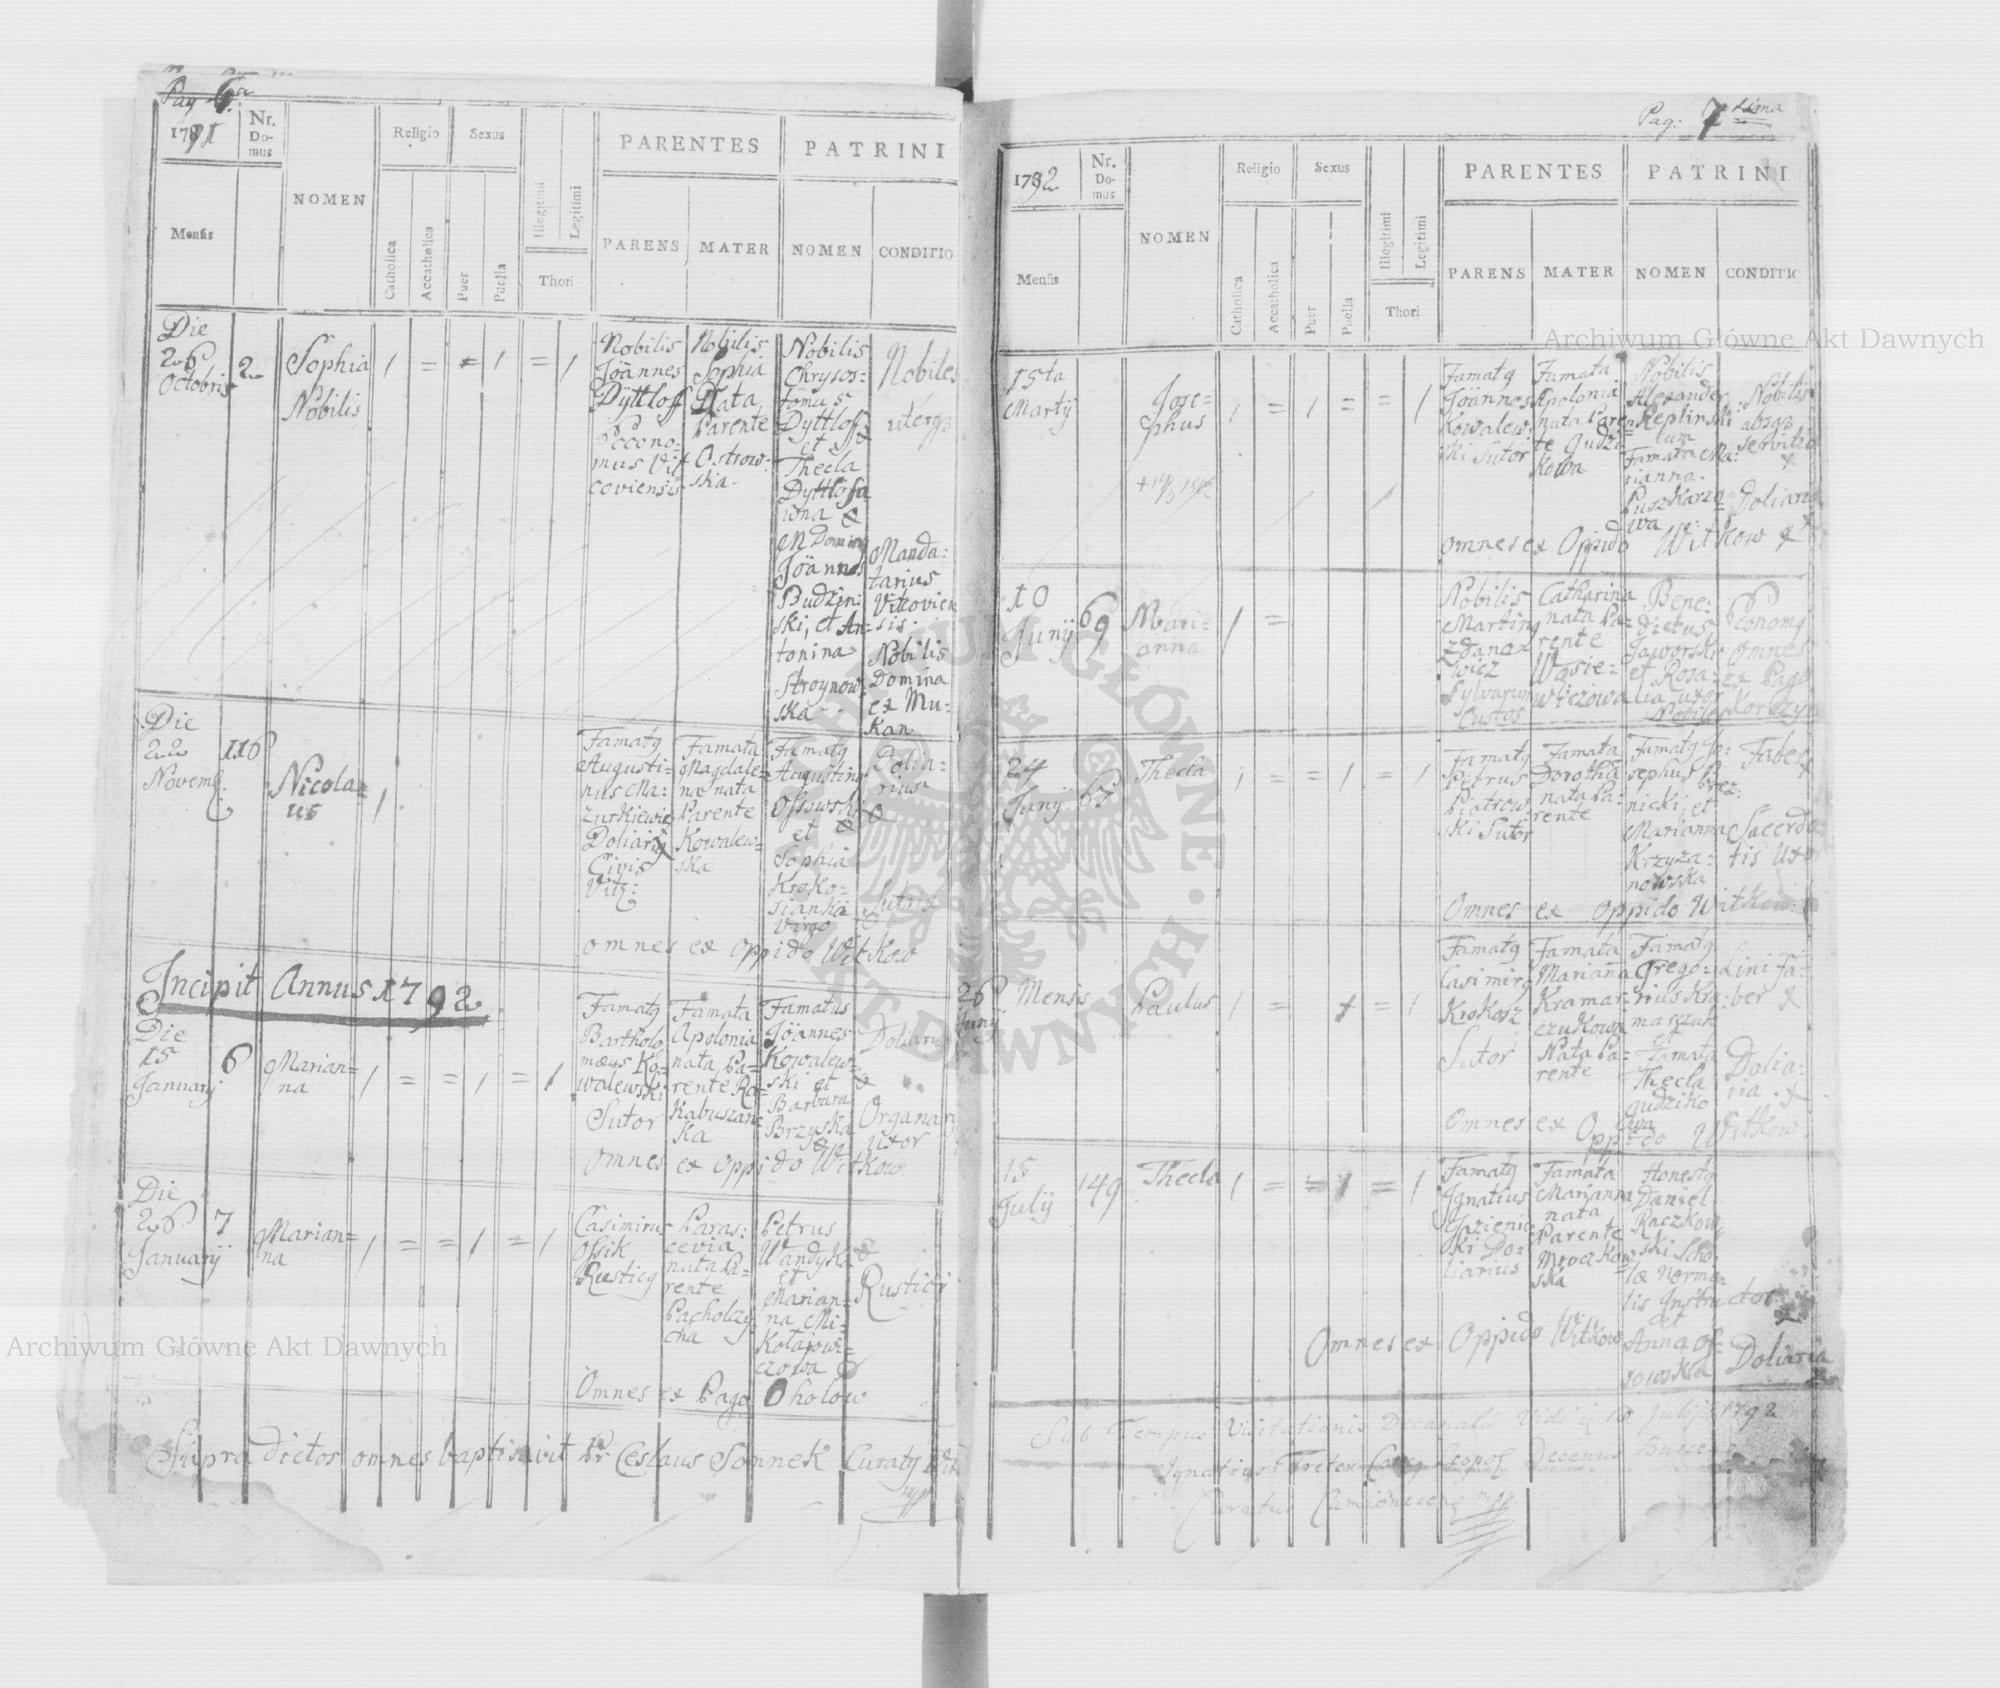 Pag 6ta
1791
Nr.
Do-
mus
NOMEN
Religio
Sexus
Illegitimi
Legitimi
PARENTES
PATRINI
Mensis
Catholica
Accatholica
Puer
Puella
Thori
PARENS
MATER
NOMEN
CONDITIO
Die
26
Octobris
2
Sophia
Nobilis
1 = = 1 = 1
Nobilis
Joannes
Dyttloff
Oecono=
mus Vit
coviensis
Nobilis
Sophia
Nata
Parente
Ostrow:
ska
Nobilis
Chrysos=
tomus
Dyttloff
et
Thecla
Dyttlofa
wna &
M Domin9
Joannes
Budzin:
ski, et An=
tonina
Stroynow:
ska
Nobiles
uterq3
Manda:
tarius
Vitkovien
sis.
Nobilis
Domina
ex Mu:
kan
Die
22
Novemb:
116
Nicola=
us
1
Famat9
Augusti=
nus Ma:
zurkiewicz
Doliari9
Civis
Vitk:
Famata
Magdale=
na nata
Parente
Kowalew=
ska
Famat9
Augustin9
Ossowski
et
Sophia
Kroko=
sianka
Virgo
Dolia=
rius
&
Sutris
omnes ex oppido Witkow
Incipit Annus 1792
Die
15
Januarij
6
Marian=
na
1 = = 1 = 1
Famat9
Bartholo
mæus Ko=
walewski
Sutor
Famata
Apolonia
nata Pa=
rente Ra=
Kabuszan=
ka
Famatus
Joannes
Kowalew=
ski et
Barbara
Brzyska
Doliari9
&
Organarij
uxor
omnes ex oppido Witkow
Die
26
Januarij
7
Marian=
na
1 = = 1 = 1
Casimirus
Ossik
Rustic9
Paras:
cevia
nata Pa=
rente
Pacholczy
cha
Petrus
Wandyka
et
Marian=
na Mi=
Kołajowi=
czowa
&
Rustici
Omnes ex Pago Oholow
Supra dictos omnes baptisavit Pr Ceslaus Sonnek Curat9 Wit
mpp
Pag: 7tima
1792
Nr.
Do-
mus
NOMEN
Religio
Sexus
Illegitimi
Legitimi
PARENTES
PATRINI
Mensis
Catholica
Accatholica
Puer
Puella
Thori
PARENS
MATER
NOMEN
CONDITIO
15ta
Martij
Jose=
phus
1 = 1 = = 1
Famat9
Joannes
Kowalew:
ski Sutor
Famata
Apolonia
nata Paren
te Gudzi
kowa
Nobilis
Alexander
Replinski
Famata Ma:
rianna
Puszkarzo
wa
Nobilis
absq3
servitio
&
Doliari9
omnes ex Oppido Witkow
10
Junij
69
Mari=
anna
1 =
Nobilis
Martin9
Zdano
wicz
Sylvarum
Custos
Catharina
nata Pa=
rente
Wasie=
wiczowa
Bene:
dictus
Jaworski
et Rosa:
lia uxor
Nobiles
Oconom9
Omnes
ex Pago
Korczyn
24
Junij
62
Thecla
1 = = 1 = 1
Famat9
Petrus
Piotrow
ski Sutor
Famata
Dorothea
nata Pa:
rente
Famat9 Jo:
sephus Brez:
nicki, et
Marianna
Krzyża:
nowska
Faber
Sacerdo
tis Uxor
Omnes ex oppido Witkow
26 Mensis
Junij
Paulus
1 = 1 = 1
Famat9
Casimir9
Krokosz
Sutor
Famata
Marianna
Kramar=
czukowa
Nata Pa=
rente
Famat9
Grego=
rius Kra=
marczuk
et
Famata
Thecla
Gudziko
wa
Lini Fa=
ber &
Dolia=
ria
Omnes ex Oppido Witkow
15
Julij
149
Thecla
1 = = 1 = 1
Famat9
Ignatius
Jazienic
ki Do=
liarius
Famata
Marianna
nata
Parente
Mroczkow
ska
Honest9
Daniel
Raczkow
ski Scho
læ Norma=
lis Instructor
et
Anna Os=
sowska
Doliaria
Omnes ex Oppido Witkow
Sub Tempus Visitationis Decanalis Vidi 18 Julij 1792
Ignatius Freter Decanus
Curatus